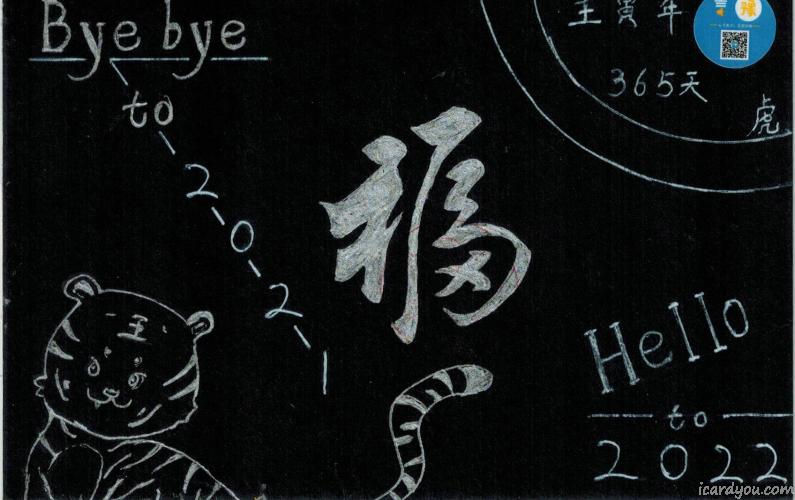 Bye bye
to
2021
福
壬寅年
365天
虎
王
Hello
to
2022
icardyou.com